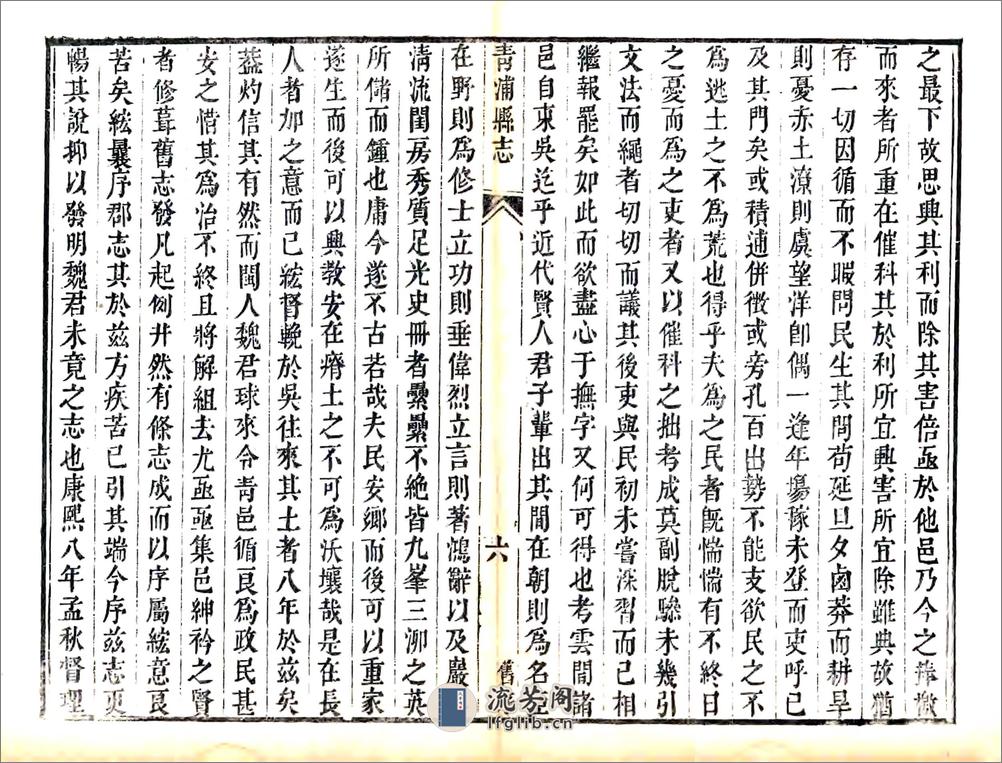 之最下故思興其利而除其害倍亟於他邑乃今之捧檄
而來者所重在催科其於利所宜興害所宜除雖典故猶
存一切因循而不暇問民生其間苟延旦夕鹵莽而耕旱
則憂赤土潦則虞望洋卽偶一逢年場稼未登而吏呼已
及其門矣或積逋併徵或旁孔百出勢不能支欲民之不
爲逃土之不爲荒也得乎夫爲之民者旣惴惴有不終日
之憂而爲之吏者又以催科之拙考成莫副脫驂未幾引
文法而繩者切切而議其後吏與民初未嘗深習而已相
繼報罷矣如此而欲盡心于撫字又何可得也考雲間諸
邑自東吳迄乎近代賢人君子輩出其間在朝則爲名
靑浦縣志
六
舊序
在野則爲修士立功則垂偉烈立言則著鴻辭以及巖
淸流閨房秀質足光史冊者纍纍不絕皆九峯三泖之英
所儲而鍾也庸今遂不古若哉夫民安鄉而後可以重家
遂生而後可以興教安在瘠土之不可爲沃壤哉是在長
人者加之意而已紘督輓於吳往來其土者八年於茲矣
葢灼信其有然而閩人魏君球來令靑邑循良爲政民甚
安之惜其爲治不終且將解組去尤亟亟集邑紳衿之賢
者修葺舊志發凡起例井然有條志成而以序屬紘意良
苦矣紘曩序郡志其於茲方疾苦已引其端今序茲志更
暢其說抑以發明魏君未竟之志也康熙八年孟秋督理
流芳閣
lfglib.com